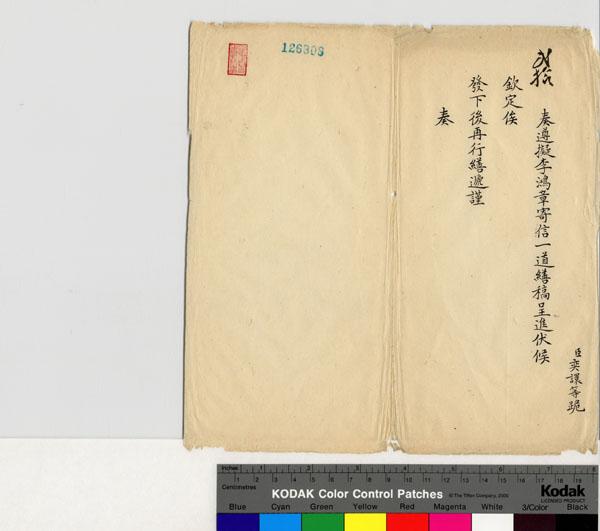 臣奕譞等跪
奏遵擬李鴻章寄信一道繕稿呈進伏候
欽定俟
發下後再行繕遞謹
奏
126306
Inches 1 2 3 4 5 6 7 8
Centimetres 1 2 3 4 5 6 7 8 9 10 11 12 13 14 15 16 17 18 19
KODAK Color Control Patches © The Tiffen Company, 2000 Kodak
LICENSED PRODUCT
Blue Cyan Green Yellow Red Magenta White 3/Color Black